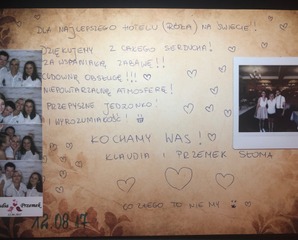 DLA NAJLEPSZEGO HOTELU (ROMA) NA ŚWIECIE!!
DZIĘKUJEMY Z CAŁEGO SERDUCHA!
ZA WSPANIAŁĄ ZABAWĘ!!
CUDOWNĄ OBSŁUGĘ!!!
NIEPOWTARZALNĄ ATMOSFERĘ!
PRZEPYSZNE JEDZONKO!
I WYROZUMIAŁOŚĆ!
KOCHAMY WAS!
KLAUDIA I PRZEMEK SŁOMA
CO ZŁEGO TO NIE MY
Przemek
12.08.17